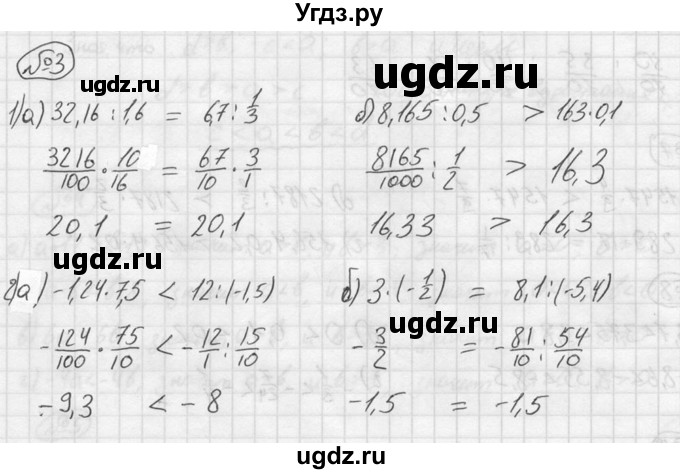 Угдз.ру
№3
1) а) 32,16 : 1,6 = 6,7 : 1/3
б) 8,165 : 0,5 > 163 · 0,1
3216/100 · 10/16 = 67/10 · 3/1
8165/1000 : 1/2 > 16,3
20,1 = 20,1
16,33 > 16,3
2) а) -1,24 · 7,5 < 12 : (-1,5)
б) 3 · (-1/2) = 8,1 : (-5,4)
-124/100 · 75/10 < -12/1 : 15/10
-3/2 = -81/10 : 54/10
-9,3 < -8
-1,5 = -1,5
ugdz.ru
ugdz.ru
ugdz.ru
ugdz.ru
ugdz.ru
ugdz.ru